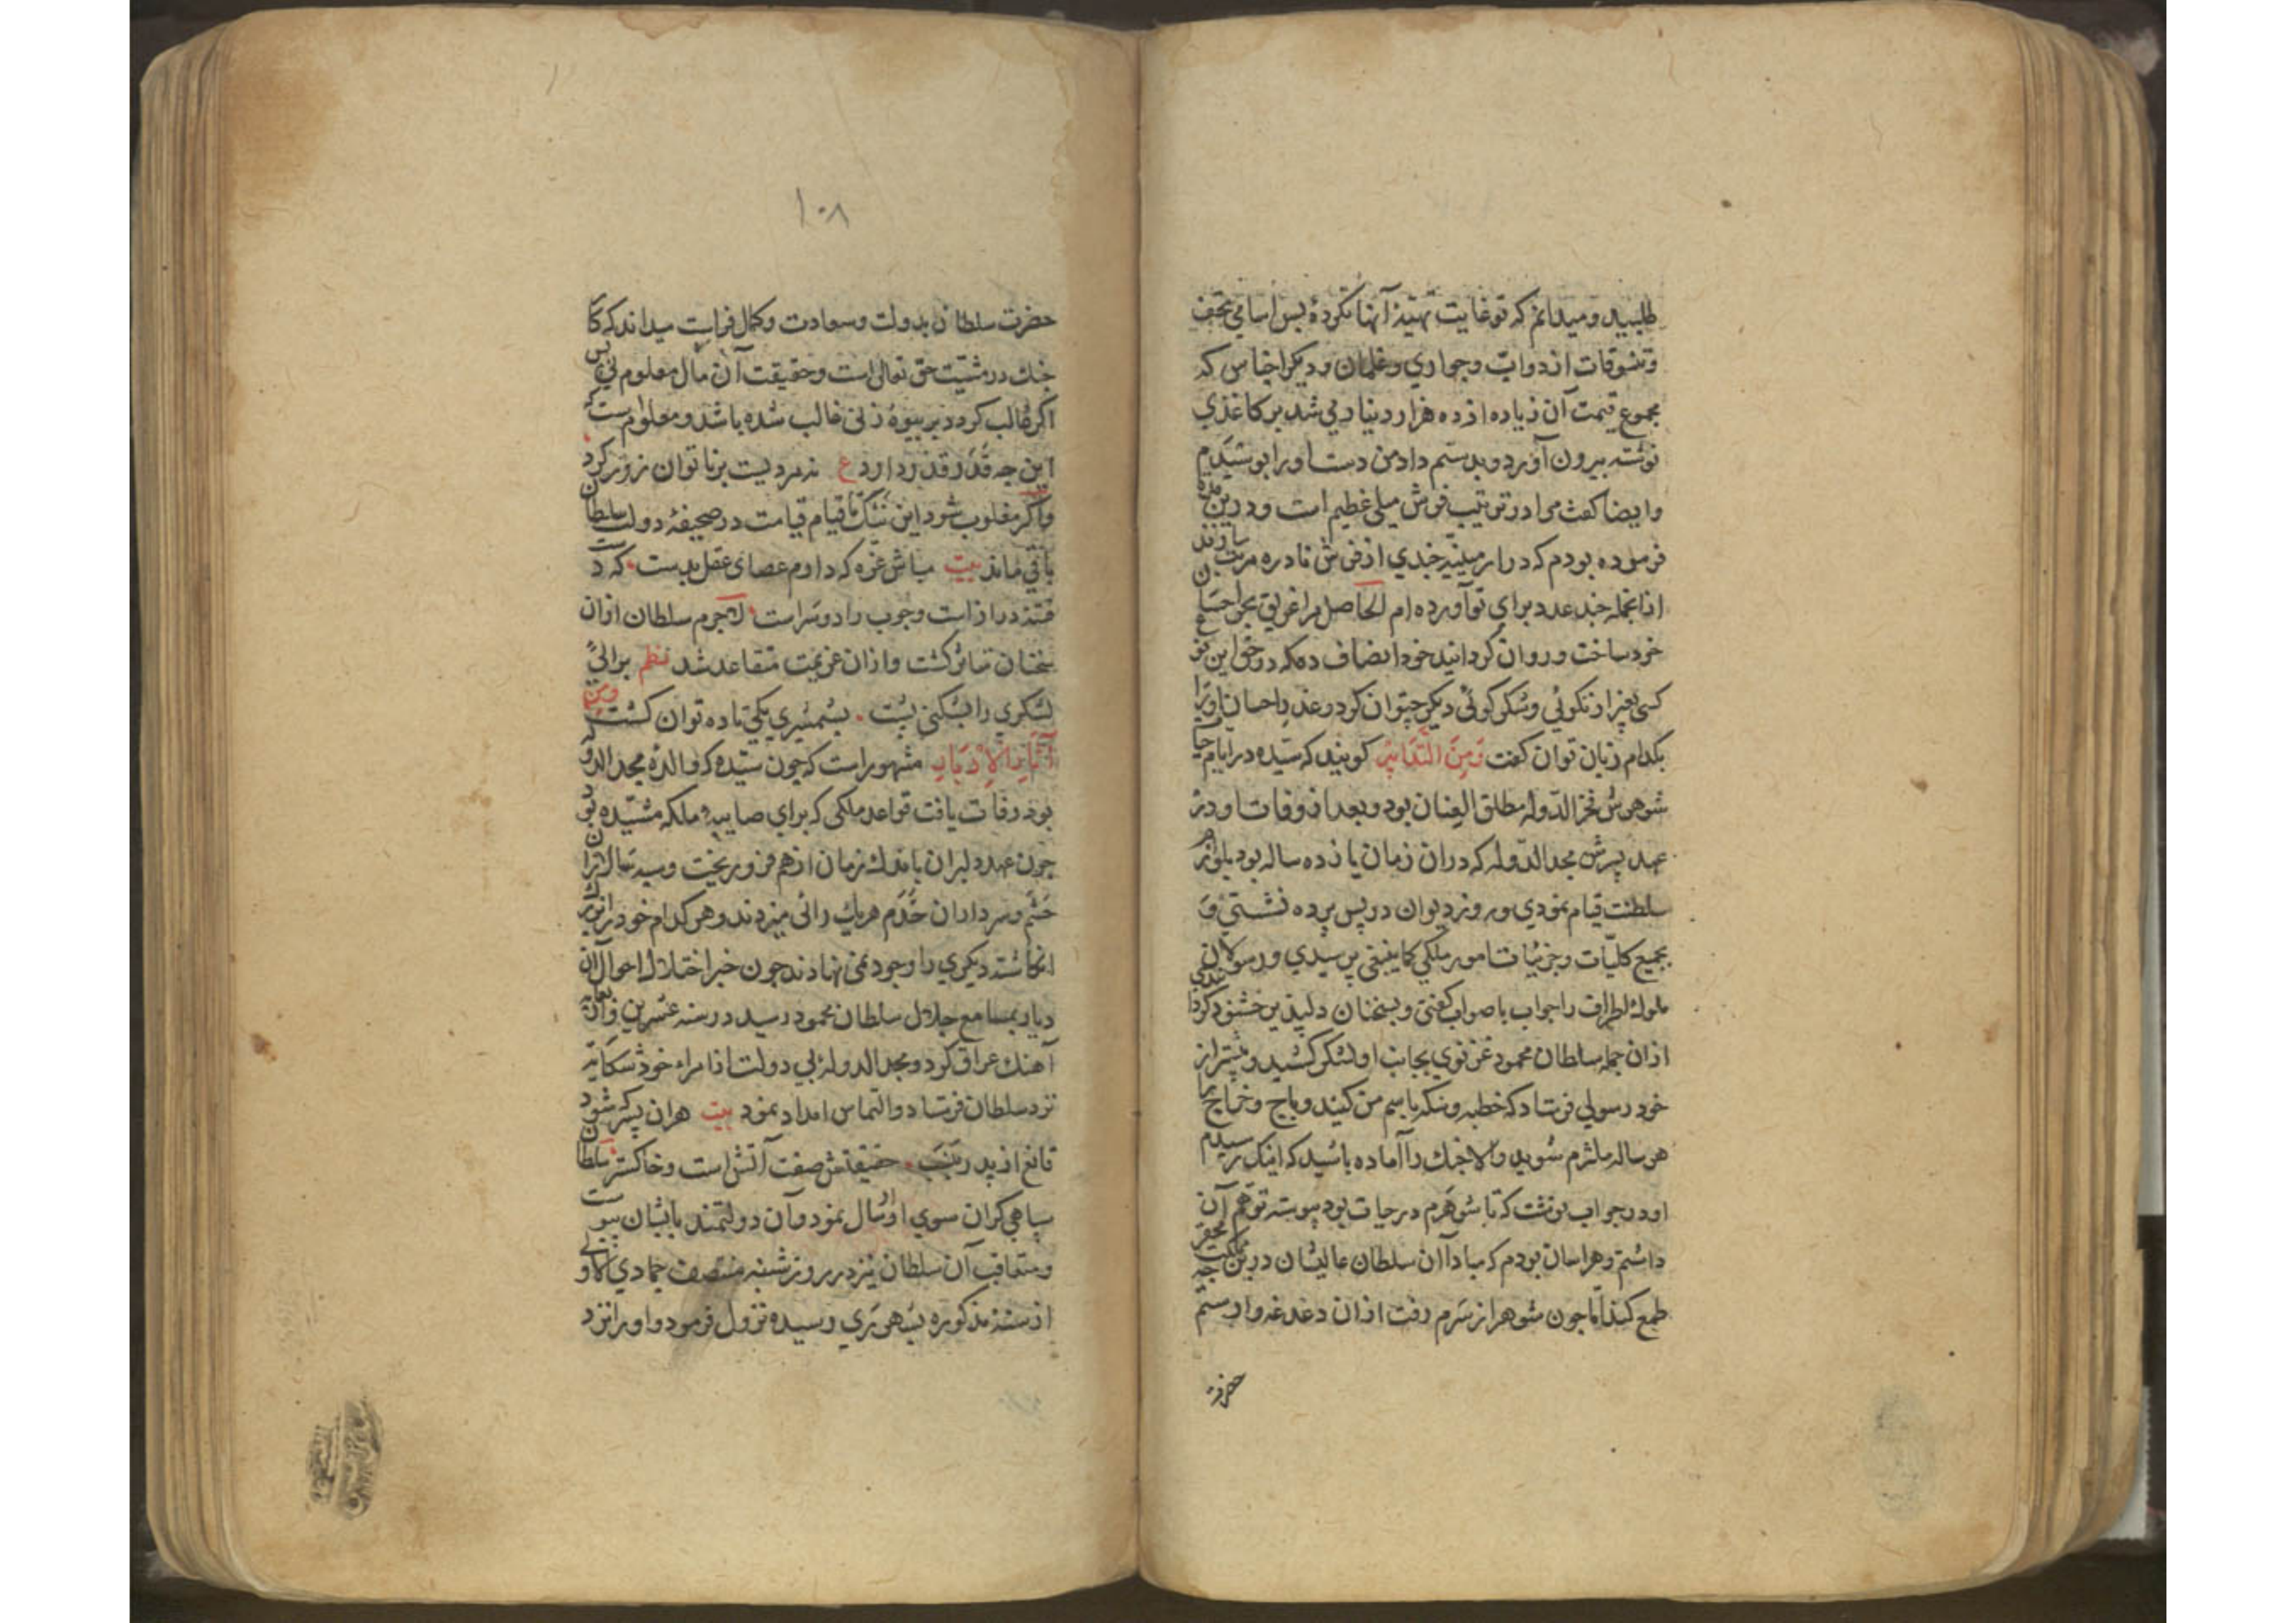 طلبید و میدانم که تو غایت تهیّهٔ آنها نکردهٔ پس اسامی تحف
و تنسوقات از دوابّ و جواری و غلمان و دیکر اجناس که
مجموع قیمت آن زیاده از ده هزار دینار می شد بر کاغذی
نوشته بیرون آورد و بدستم داد من دست او را بوسیدم
و ایضا کفت مرا در ترتیب فرش میلی عظیم است و درین
فرموده بودم که در ارمینیه جندی از فرش نادره مرتب سازند
از انجمله جند عدد برای تو آورده ام الحاصل مرا غریق بحر احسان
خود ساخت و روان کردانید خود انصاف ده که در حق این نوع
کسی بغیر از نکوئی و شکر کوئی دیکر چتوان کرد و عذر احسان او را
بکدام زبان توان کفت وَمِنَ التَّدَابِیر کویند که سیّده در ایام حیات
شوهرش فخر الدّوله مطلق العنان بود و بعد از وفات او در
عهد پسرش مجد الدّوله که در ان زمان یازده ساله بود بلوازم
سلطنت قیام نمودی و روز دیوان در پس پرده نشستی و
بجمیع کلیّات و جزئیات امور ملکی کما ینبغی پرسیدی و رسولان
ملوک اطراف را جواب باصواب کفتی و بسخنان دلپذیر خشنود کردی
از ان جمله سلطان محمود غزنوی بجانب او لشکر کشید و پیشتر از
خود رسولی فرستاد که خطبه و سکه باسم من کنید و باج و خراج
هر ساله ملتزم شوید و الا جنک را آماده باشید که اینک رسیدم
او در جواب نوشت که تا شوهرم در حیات بود پیوسته توهم آن
داشتم و هراسان بودم که مبادا ان سلطان عالیشان درین مملکت محقر
طمع کند امّا جون شوهر از سرم رفت از ان دغدغه وارستم
حضرت
۱۰۸
حضرت سلطان بدولت و سعادت و کمال فراست میداند که کار
جنک در مشیّت حق تعالی است و حقیقت آن مآل معلوم نی پس
اکر غالب کردد بر بیوه زنی غالب شده باشد و معلوم است که
این جه قدر قدر دارد ع نه مردیست بر ناتوان زور کرد
و اکر مغلوب شود این ننک تا قیام قیامت در صحیفهٔ دولت سلطان
باقی ماند بیت مباش غره که دارم عصای عقل بدست که دست
فتنه دراز است و جوب را دو سراست لاجرم سلطان از ان
سخنان متاثر کشت و از ان عزیمت متقاعد شد نظم برائی
لشکری را بشکنی پشت بشمشیری یکی تا ده توان کشت وَمِن
آثَارِ الْاِدْبَارِ مشهور است که جون سیّده که والدهٔ مجد الدوله
بود وفات یافت قواعد ملکی که برای صایبهٔ ملکه مشیّده بود
جون عهد دلبران باندک زمان از هم فرو ریخت و سپه سالاران
حشم و سرداران خدم هر یک رائی میزدند و هر کدام خود را بزرک
انکاشته دیکری را وجود نمی نهادند جون خبر اختلال احوال آن
دیار بمسامع جلال سلطان محمود رسید در سنه عشرین و اربعمایه
آهنک عراق کرد و مجد الدولهٔ بی دولت از امراء خود شکایت
نزد سلطان فرستاد و التماس امداد نمود بیت هران پسر که شود
قانع از پدر بنسب حقیقتش صفت آتش است و خاکستر سلطان
سپاهی کران سوی او ارسال نمود و آن دولتمند بایشان پیوست
و متعاقب آن سلطان نیز در روز شنبه منتصف جمادی الاولی
از سنهٔ مذکوره بشهر ری رسیده نزول فرمود و او را نزد